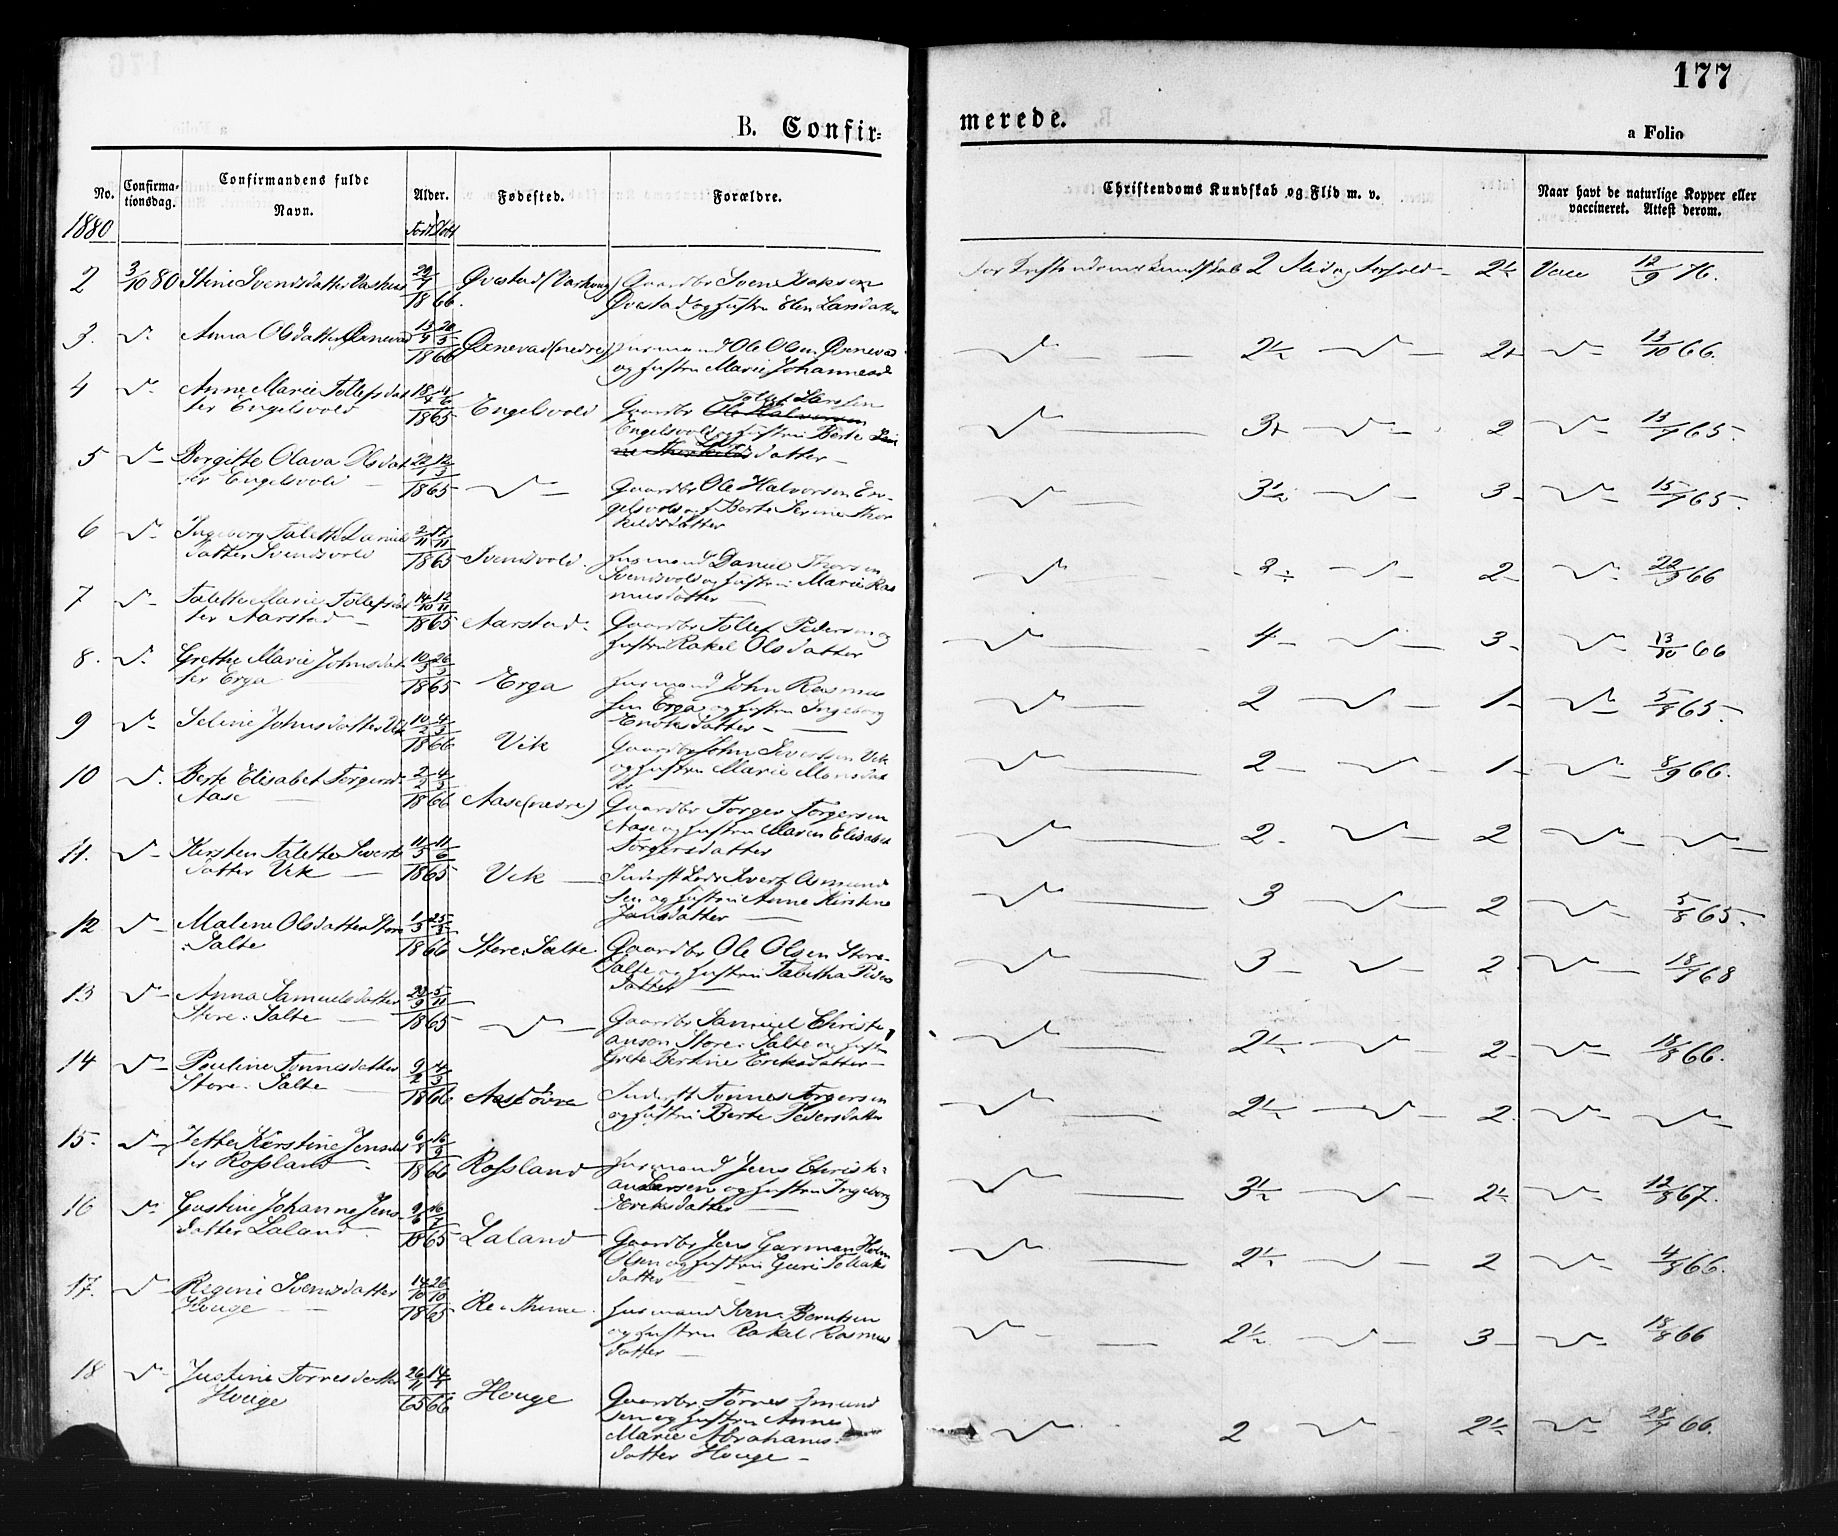 177
B. Confir-
merede.
a Folio
No.
Confirma-
tionsdag.
Confirmandens fulde
Navn.
Alder.
Fødested.
Forældre.
Christendoms Kundskab og Flid m. v.
Naar havt de naturlige Kopper eller
vaccineret. Attest derom.
1880
Født Døbt
2 3/10 80 Stine Svendsdatter 29/1 1866. Øvestad Gaardbr Svend Isaksen
Øvestad og Hustru Elen Larsdatter
2 Flid og Forhold 2½ Vacc 12/9 76.
3. Anna Olsdatter Øenevad 13/4 20/5 1866 Øenevad (nedre) Husmand Ole Olsen Øenevad
og Hustru Marie Johannesd
2½ 2+ 13/10 66.
4 Anne Marie Tollefsdat
ter Engelsvold 18/4 4/6 1865 Engelsvold Gaardbr Ole Halvorsen Tollef Larsen
Engelsvold og Hustru Berte
datter
3+ 2 13/9 65.
5 Bergitte Olava Olsdat
ter Engelsvold 22/1 12/3 1865 Gaardbr Ole Halvorsen En-
gelsvold Berte Serine Thor
kildsdatter
3½ 3 15/9 65.
6 Ingeborg Talette Daniels
datter Svendsvold 2/11 11/11 1865 Svendsvold. Husmand Daniel Thorsen
Svendsvold og Hustru Marie Ras
musdatter
2 2 22/9 66
7 Talette Marie Tollefsdat
ter Aarstad 14/10 12/11 1865 Aarstad Gaardbr Tollef Pedersen og
Hustru Rakel Olsdatter
4 3 13/10 66
8. Grethe Marie Johnsdat
ter Erga 10/3 26/3 1865 Erga Husmand John Rasmus
sen Erga og Hustru Ingeborg
Enoksdatter
2 1 5/8 65.
9 Seline Johnsdatter Vik 10/2 4/3 1866 Vik Gaardbr John Sivertsen Vik
og Hustru Marie Monsdat
ter
2 1 8/9 66.
10 Berte Elisabet Torgersd.
Aase 2/2 4/3 1866 Aase (nedre) Gaardbr Torger Torgersen
Aase og Hustru Maren Elisabet
Torgersdatter
2 2
11. Kirsten Talette Siverts
datter Vik 11/5 11/6 1865 Vik Inderst Sivert Osmund
sen og Hustru Anne Kirstine
Jansdatter
3 2 5/8 65.
12 Malene Olsdatter Store
Salte 1/3 25/3 1866 Store-Salte Gaardbr Ole Olsen Store-
Salte og Hustru Tabitha Peders
datter
3 2 18/9 68
13 Anna Samuelsdatter
Store-Salte 23/9 5/11 1865 Gaardbr Samuel Christi
ansen Store-Salte og Hustru
Grete Bertine Eriksdatter
2½ 2 18/8 66.
14 Pauline Tønnesdatter
Store-Salte 9/2 14/3 1866 Aase øvre Inderst Tønnes Torgersen
og Hustru Berte Pedersdatter
2½ 2
15. Jette Kirstine Jensdat
ter Rossland 6/8 16/9 1866 Rossland Husmand Jens Christi-
an Larsen og Hustru Ingeborg
Eriksdatter
3½ 2½ 12/8 67.
16 Gustine Johanne Jens-
datter Laland 9/6 16/7 1865 Laland Gaardbr Jens Garman Holm
Olsen og Hustru Guri Tollaks
datter
2½ 2 4/8 66.
17. Regine Svendsdatter
Houge 14/10 26/10 1865 Re-Thime Husmand Sven Berntsen
og Hustru Rakel Rasmus
datter
2½ 3 18/8 66
18 Justine Torresdatter
Houge 26/11 65 14/1 66 Houge Gaardbr Torres Smund
sen og Hustru Anne
Marie Abrahams-
datter Houge
2 2½ 28/9 66.